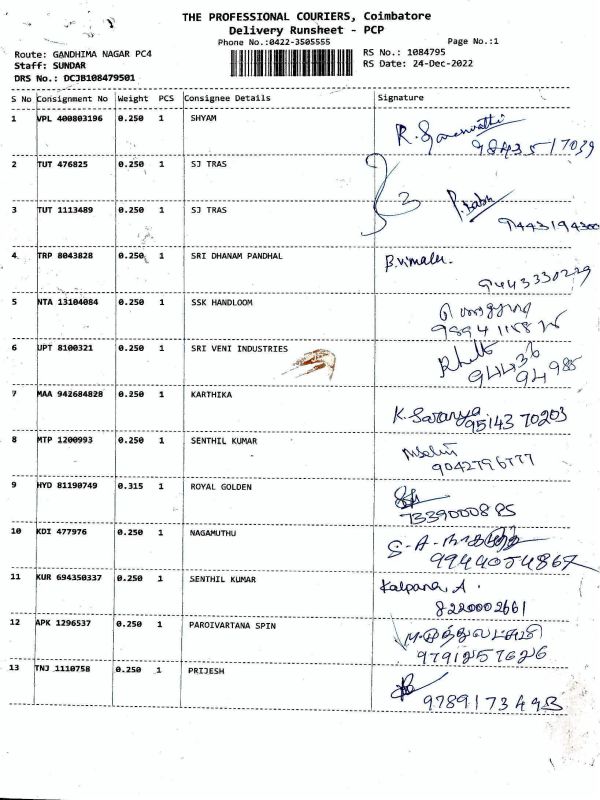 THE PROFESSIONAL COURIERS, Coimbatore
Delivery Runsheet - PCP
Phone No.:0422-3505555 Page No.:1
Route: GANDHIMA NAGAR PC4 RS No.: 1084795
Staff: SUNDAR RS Date: 24-Dec-2022
DRS No.: DCJB108479501
S No Consignment No Weight PCS Consignee Details Signature
1 VPL 400803196 0.250 1 SHYAM
2 TUT 476825 0.250 1 SJ TRAS
3 TUT 1113489 0.250 1 SJ TRAS P. Babu
4 TRP 8043828 0.250 1 SRI DHANAM PANDHAL B.vimala.
9443330229
5 NTA 13104084 0.250 1 SSK HANDLOOM
6 UPT 8100321 0.250 1 SRI VENI INDUSTRIES
94436
94985
7 MAA 942684828 0.250 1 KARTHIKA K. Saranya
9514370203
8 MTP 1200993 0.250 1 SENTHIL KUMAR
9042796777
9 HYD 81190749 0.315 1 ROYAL GOLDEN
7339000885
10 KDI 477976 0.250 1 NAGAMUTHU
9944054867
11 KUR 694350337 0.250 1 SENTHIL KUMAR Kalpana A.
8220002661
12 APK 1296537 0.250 1 PAROIVARTANA SPIN
9791257626
13 TNJ 1110758 0.250 1 PRIJESH